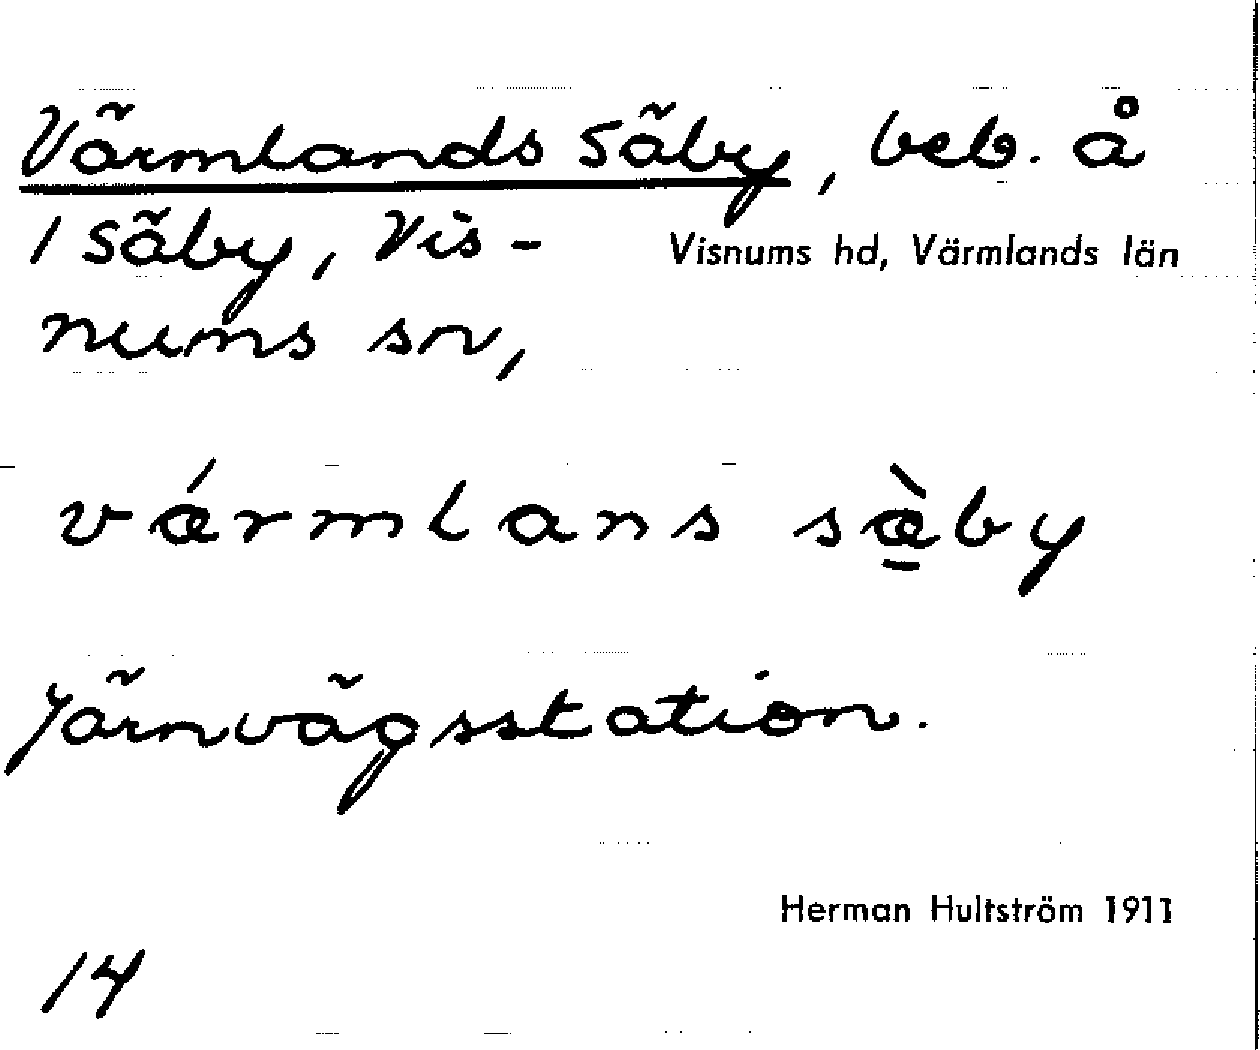 Värmlands Säby, beb. å
1 Säby, Vis-
Visnums hd, Värmlands län
nums sn,
vǽrmlans sæ̱̀by
Järnvägsstation.
Herman Hultström 1911
14